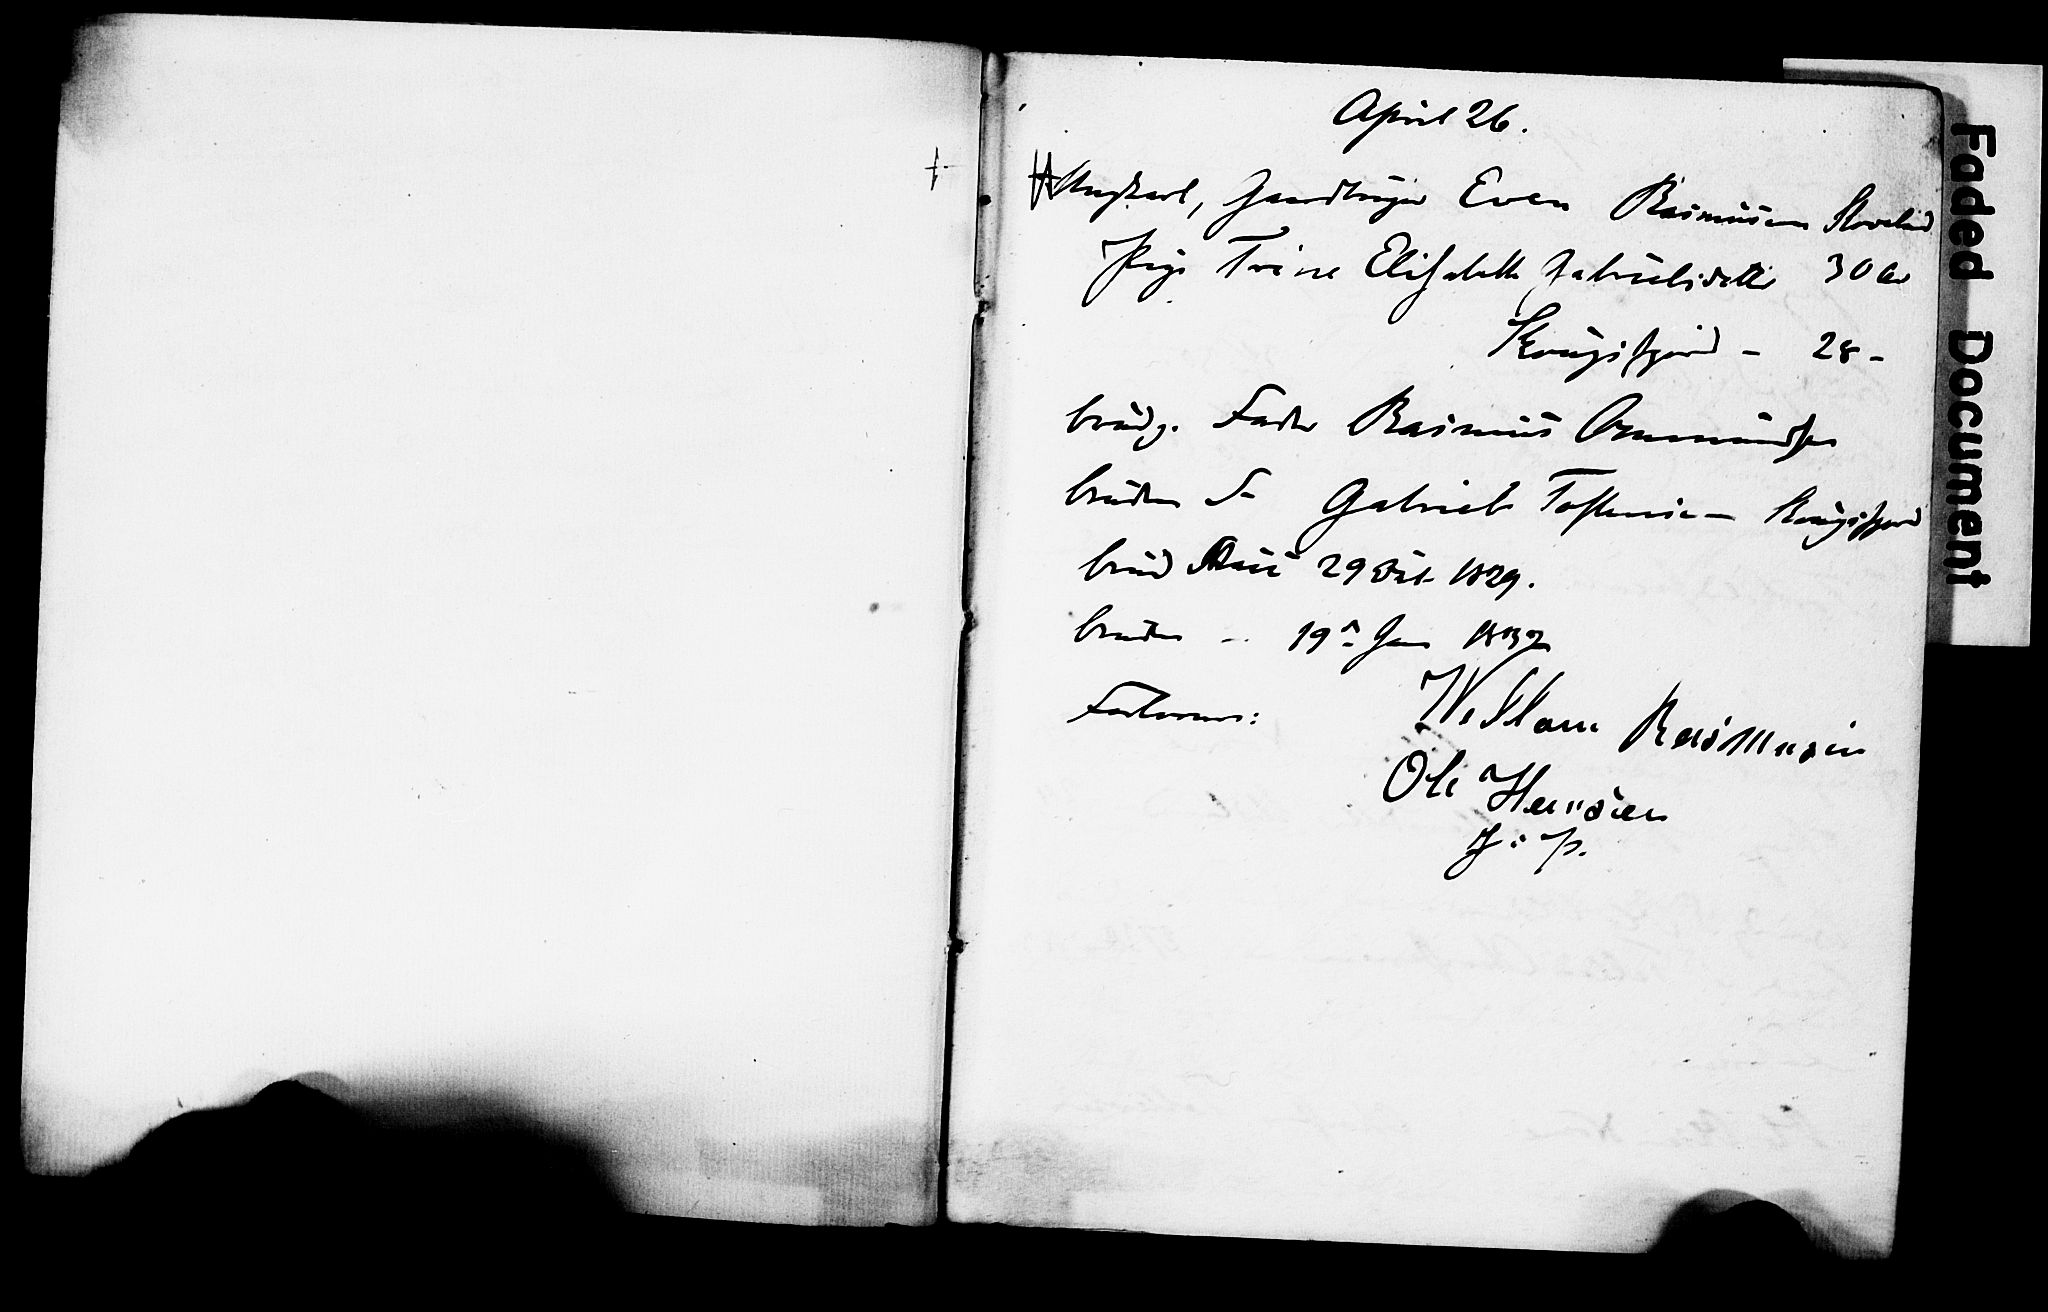 April 26.
Ungkarl, Gaardbruger Even Rasmusen Skoveland
Pige Trine Elisabeth Gabrielsdatter 30 Aar
Kongsfjord - 28 -
brudg. Fader Rasmus Osmundsen
bruden F- Gabriel Tostensen - Kongsfjord
brud 29 1829.
bruden - 19 Jan 1832
Forlovere:
William Rasmusen
Ole Hansen
Faded Document